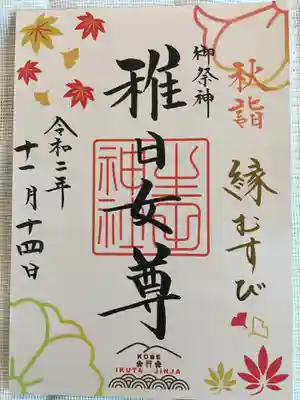 秋詣
縁むすび
御祭神
稚日女尊
生田神社
令和二年
十一月十四日
KOBE
IKUTA JINJA